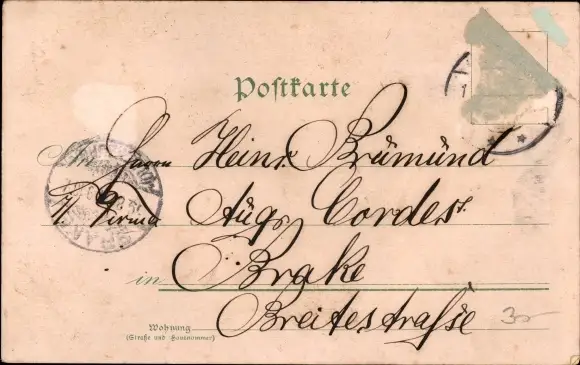 Postkarte
Herrn Heinr. Brümünd
i/ Firma Aug. Cordes.
in Brake
Breitestraße
Wohnung
(Straße und Hausnummer)
3